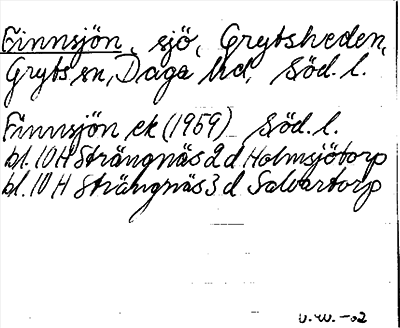 Finnsjön, sjö, Grytsheden,
Gryts sn, Daga hd, Söd. l.
Finnsjön ek (1959) Söd. l.
bl. 10 H Strängnäs 2 d Holmsjötorp
bl. 10 H Strängnäs 3 d Salvartorp
U.W.-02